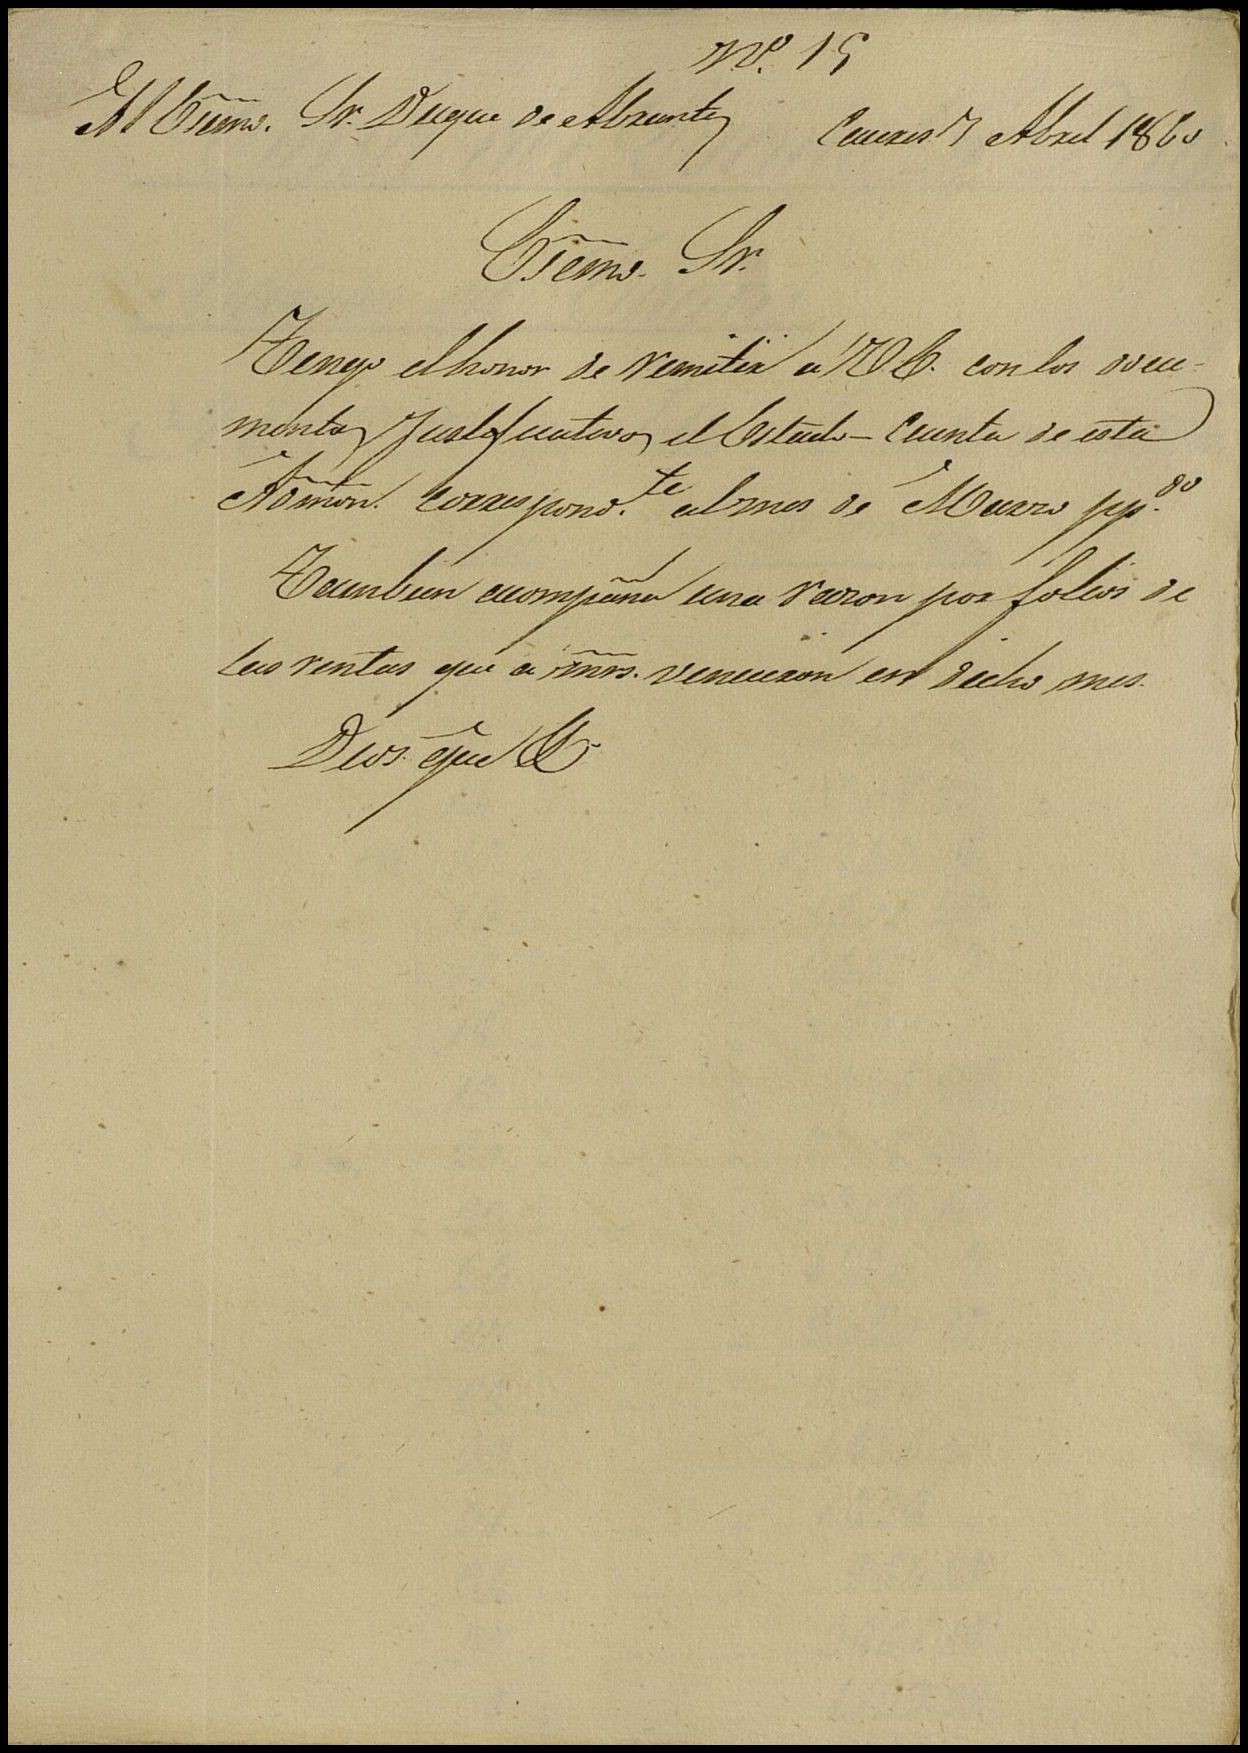 Nº. 15
Al Exmo. Sr. Duque de Abrantes
Caceres 7 Abril 1860
Exmo. Sr.
Tengo el honor de remitir a V. E. con los docu-
mentos justificativos el Estado-Cuenta de esta
Admon. correspond.te al mes de Marzo pp.do
Tambien acompaña una razon por folios de
las rentas que a mrs. vencieron en dicho mes.
Dios gue &